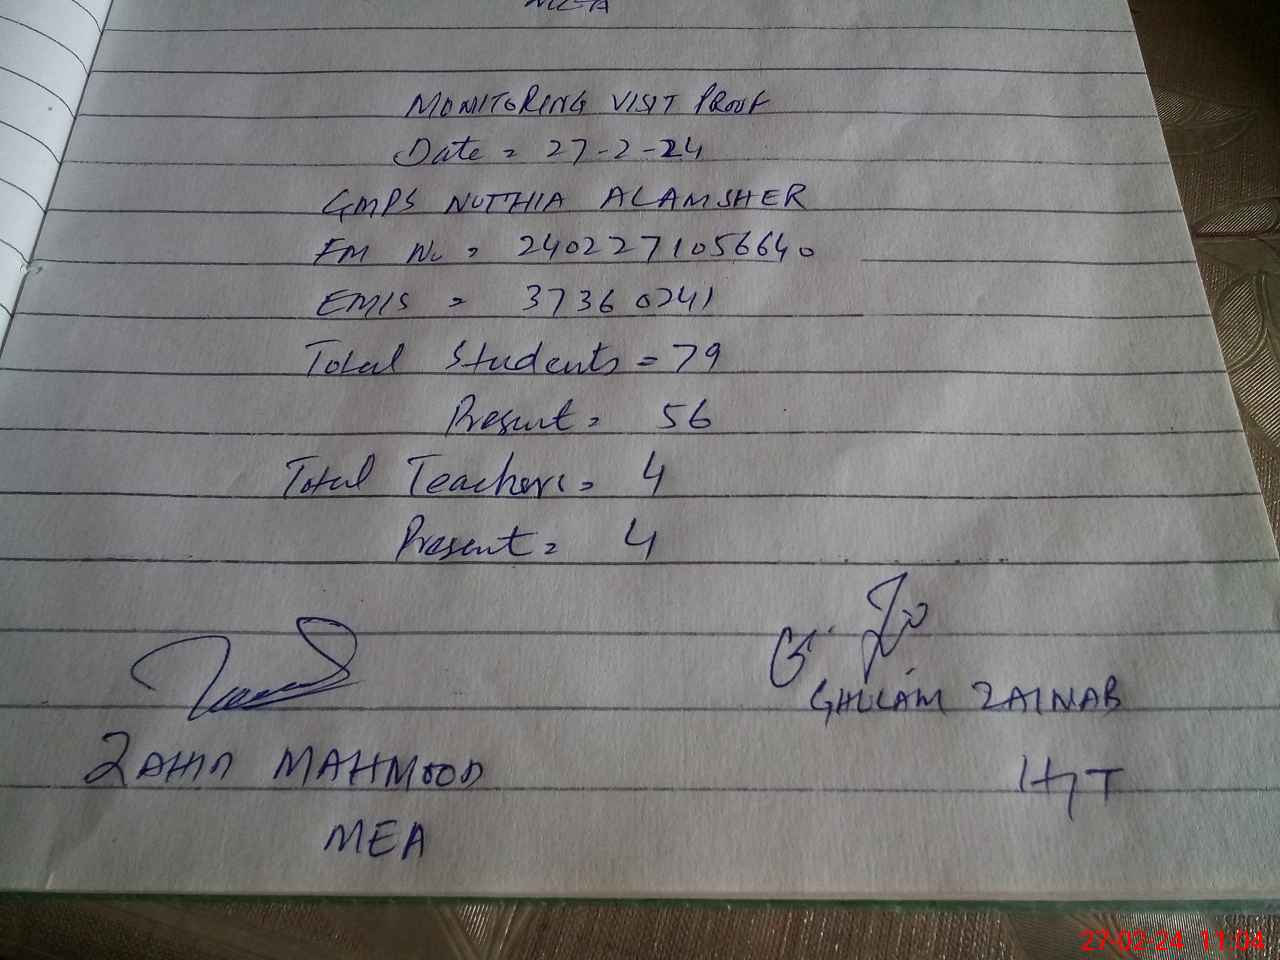 MEA
MONITORING VISIT PROOF
Date = 27-2-24
GMPS NUTTHIA ALAMSHER
FM No = 2402271056640
EMIS = 37360241
Total Students = 79
Present = 56
Total Teachers = 4
Present = 4
G. Zo
GHULAM ZAINAB
ZAHID MAHMOOD
HT
MEA
27-02-24 11:04